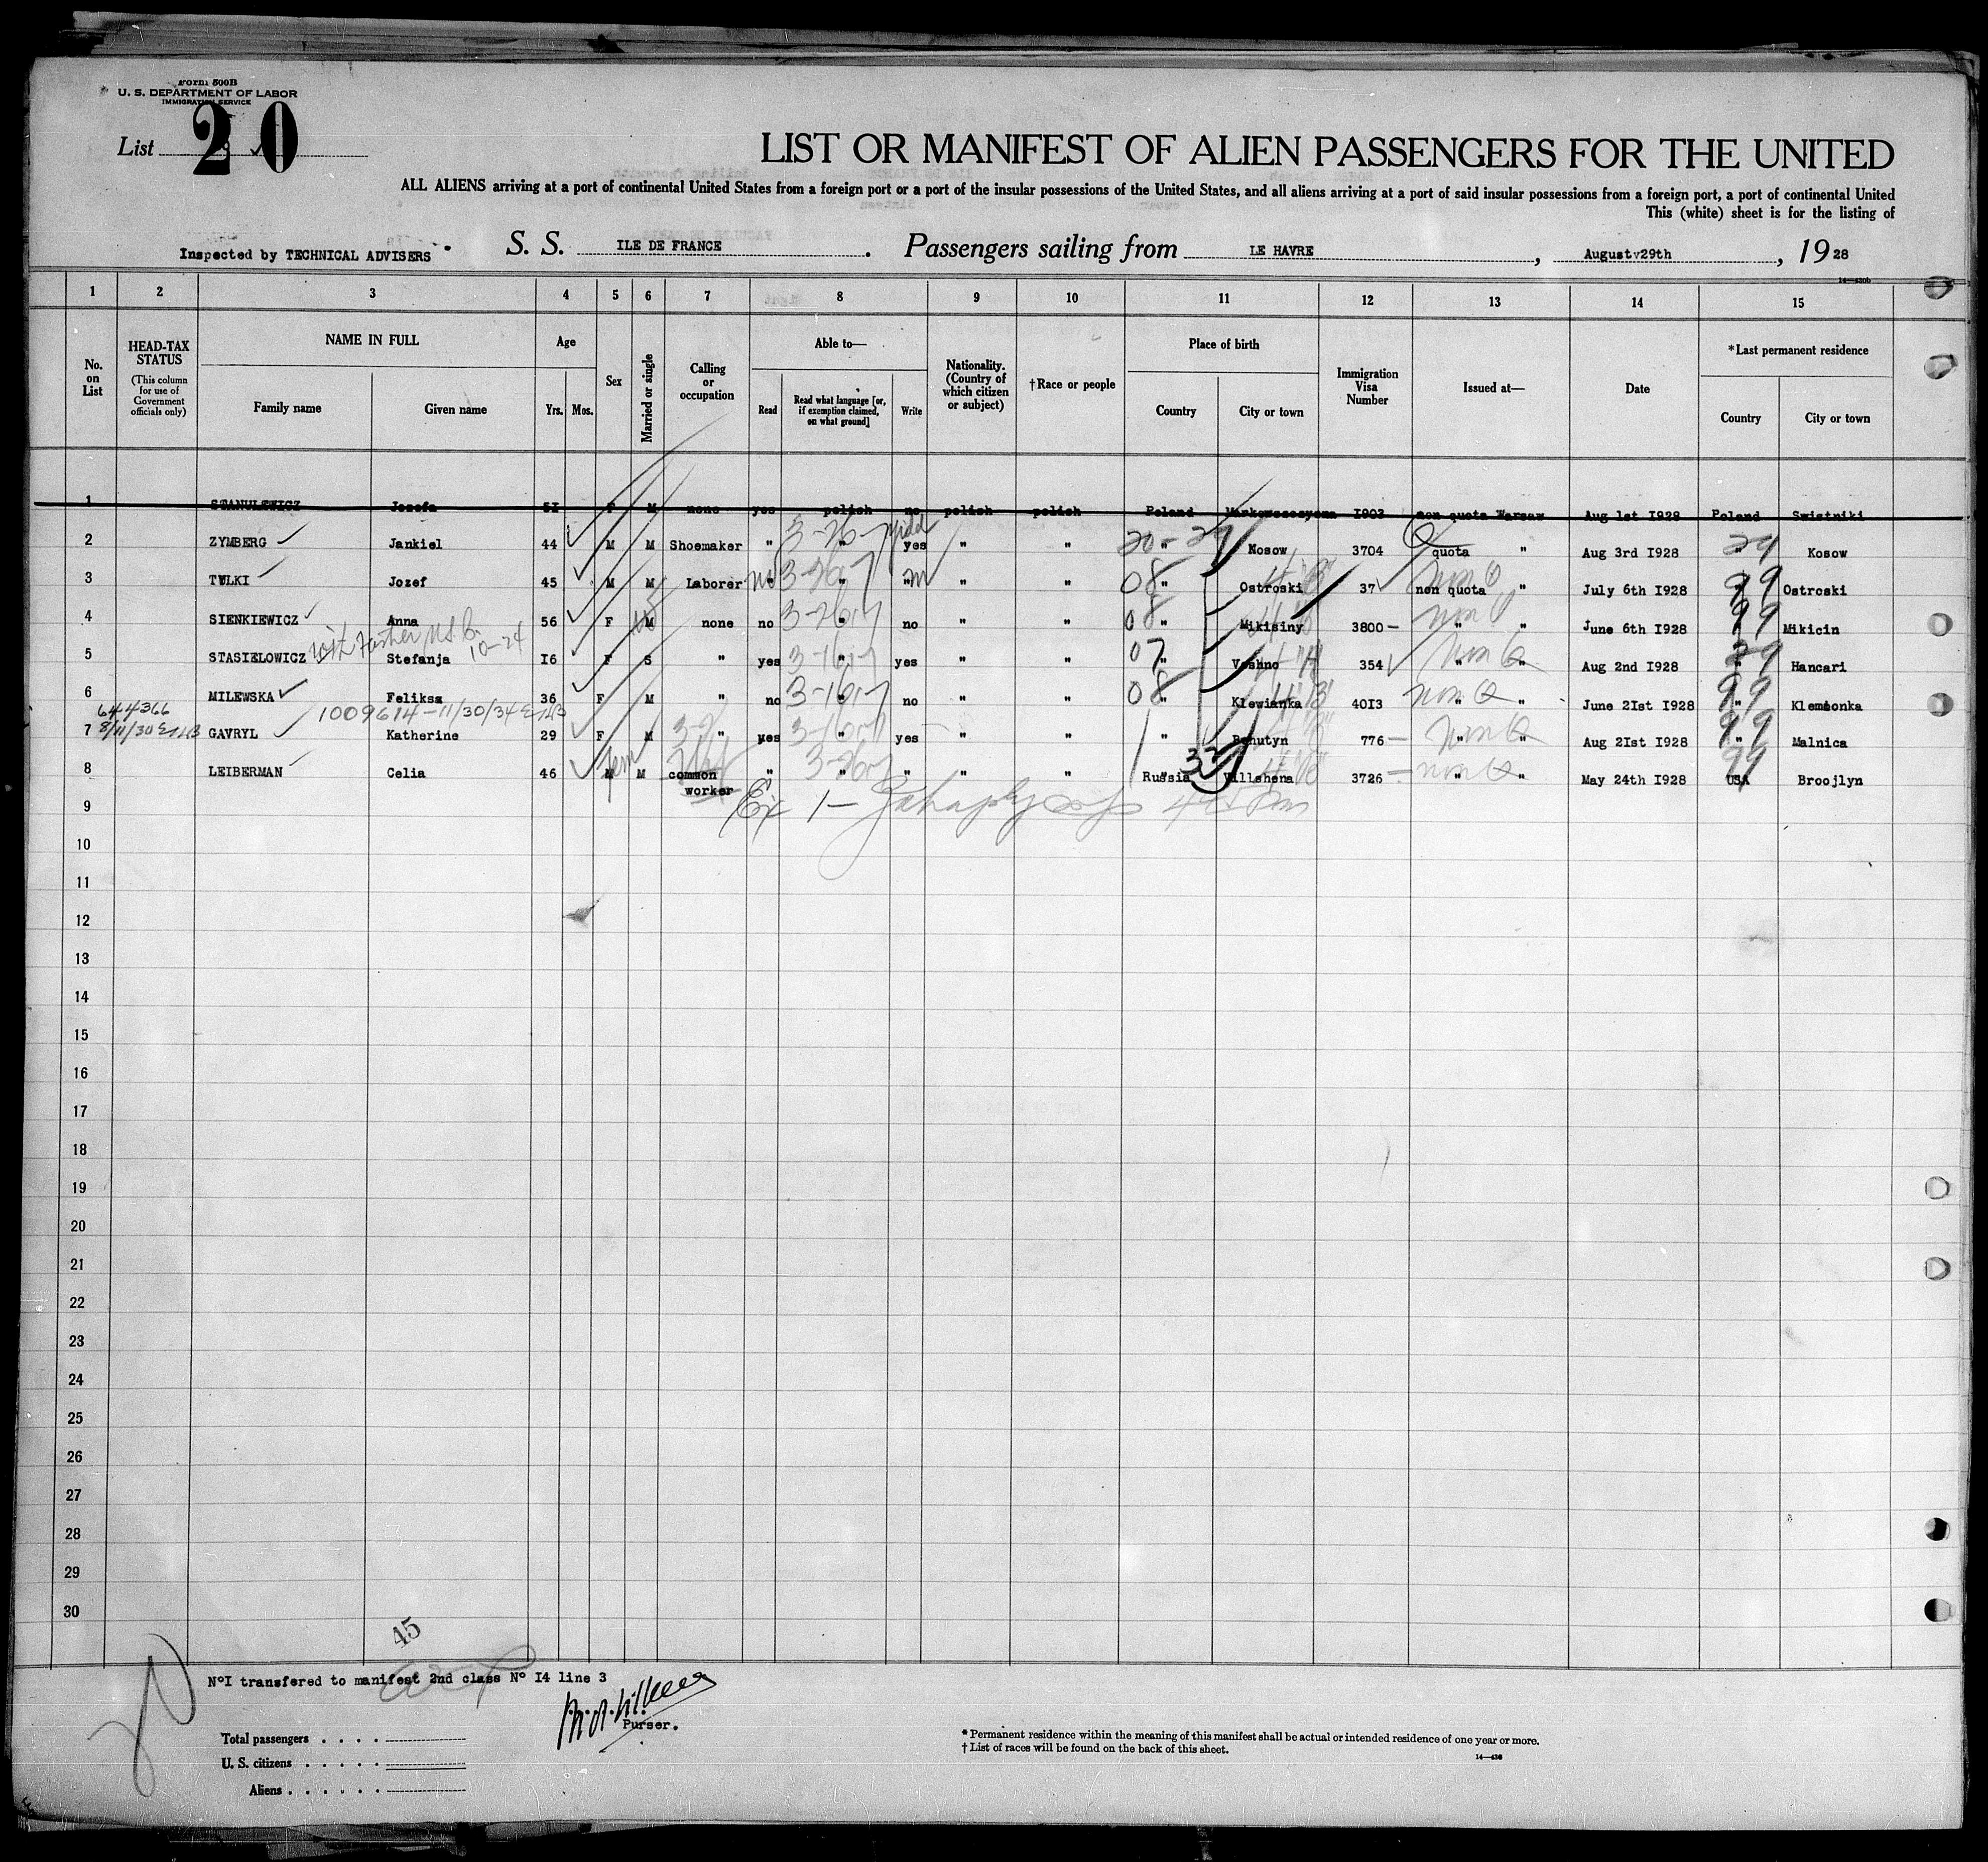 Form 500B
U. S. DEPARTMENT OF LABOR
IMMIGRATION SERVICE
List 20
LIST OR MANIFEST OF ALIEN PASSENGERS FOR THE UNITED
ALL ALIENS arriving at a port of continental United States from a foreign port or a port of the insular possessions of the United States, and all aliens arriving at a port of said insular possessions from a foreign port, a port of continental United
This (white) sheet is for the listing of
Inspected by TECHNICAL ADVISERS S. S. ILE DE FRANCE. Passengers sailing from LE HAVRE, August 29th, 1928
1 2 3 4 5 6 7 8 9 10 11 12 13 14 15
No. on List
HEAD-TAX STATUS (This column for use of Government officials only)
NAME IN FULL Family name Given name
Age Yrs. Mos.
Sex
Married or single
Calling or occupation
Able to— Read Read what language [or, if exemption claimed, on what ground] Write
Nationality. (Country of which citizen or subject)
†Race or people
Place of birth Country City or town
Immigration Visa Number
Issued at—
Date
*Last permanent residence Country City or town
1 STANULEWICZ Jozefa 5I F M none yes polish no polish polish Poland I903 non quota Warsaw Aug 1st I928 Poland Swistniki
2 ZYMBERG Jankiel 44 M M Shoemaker " 3-26- " yes " " 20-29 " Kosow 3704 quota " Aug 3rd I928 29 " Kosow
3 TULKI Jozef 45 M M Laborer no 3-26-7 " " " " 08 " Ostroski 37 non quota " July 6th I928 99 " Ostroski
4 SIENKIEWICZ Anna 56 F M none no 3-26-7 " no " " 08 " Mikisiny 3800- " " June 6th I928 99 " Mikicin
with Father U.S.C. 10-24
5 STASIELOWICZ Stefanja I6 F S " yes 3-16-7 " yes " " 07 " Veshno 354 non Q " " Aug 2nd I928 29 " Hancari
6 MILEWSKA Feliksa 36 F M " no 3-16-7 " no " " 08 " Klewianka 40I3 non Q " " June 2Ist I928 99 " Klemionka
644366 1009614-11/30/34
7 8/11/30 GAVRYL Katherine 29 F M " yes 3-16-7 " yes " " " Bohutyn 776 - non Q " " Aug 2Ist I928 99 " Malnica
8 LEIBERMAN Celia 46 M fem M common worker " 3-26-7 " " " " Russia 33 Villshena 3726 - non Q " " May 24th I928 99 USA Broojlyn
9
10
11
12
13
14
15
16
17
18
19
20
21
22
23
24
25
26
27
28
29
30
45
N°I transfered to manifest 2nd class N° I4 line 3
Purser.
Total passengers
U. S. citizens
Aliens
* Permanent residence within the meaning of this manifest shall be actual or intended residence of one year or more.
† List of races will be found on the back of this sheet.